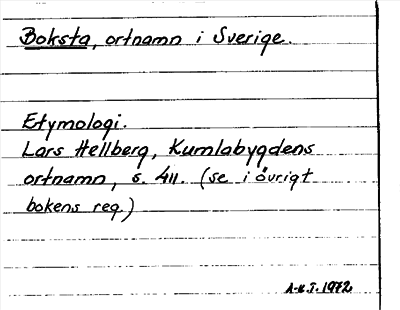 Boksta, ortnamn i Sverige.
Etymologi.
Lars Hellberg, Kumlabygdens
ortnamn, s. 411. (se i övrigt
bokens reg.)
A-K J. 1972